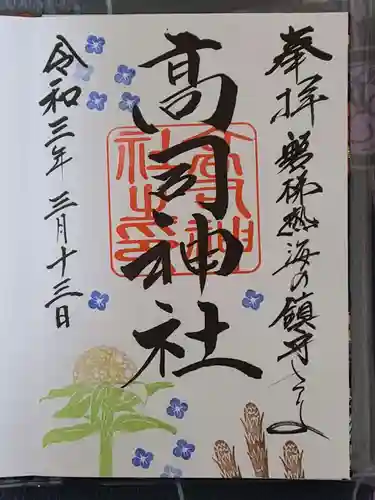 奉拝 磐梯熱海の鎮守さま
高司神社
令和三年 三月十三日